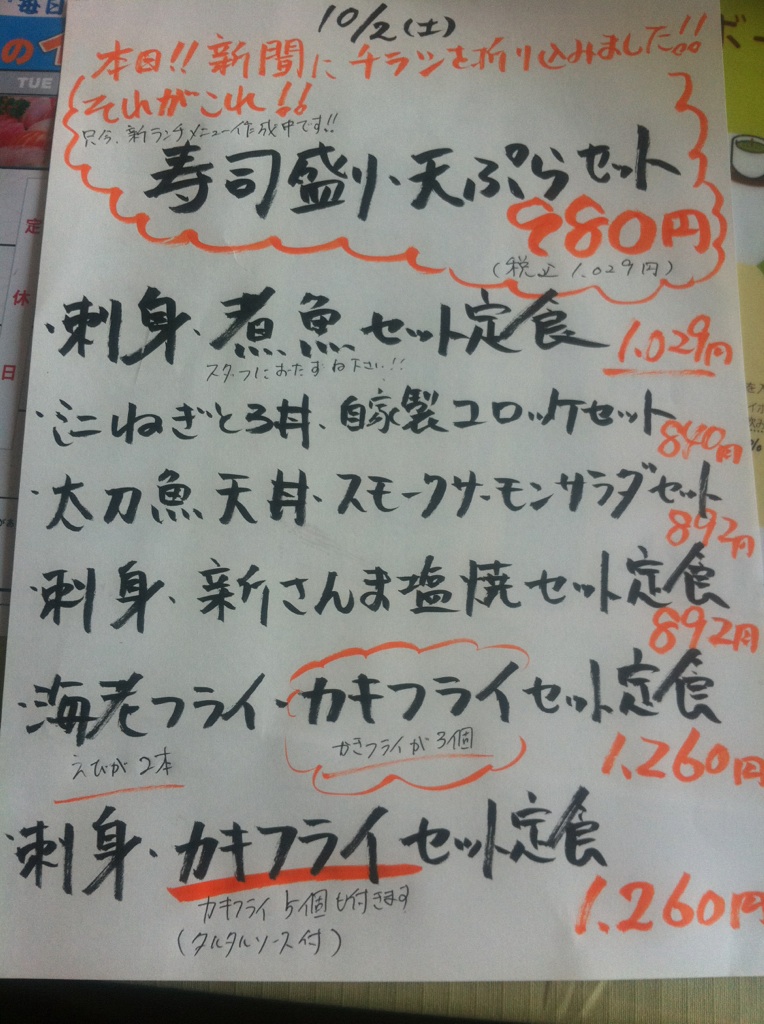 「毎日
の
TUE
定
休
日
10/2(土)
本日!!新聞にチラシを折り込みました!!
それがこれ!!
只今、新ランチメニュー作成中です!!
寿司盛り・天ぷらセット
980円
(税込 1.029円)
・刺身・煮魚セット定食 1.029円
スタッフにおたずね下さい!!
・ミニねぎとろ丼・自家製コロッケセット 840円
・太刀魚天丼・スモークサーモンサラダセット 892円
・刺身・新さんま塩焼セット定食 892円
・海老フライ・カキフライセット定食
えびが2本 かきフライが3個 1.260円
・刺身・カキフライセット定食
カキフライ5個も付きます 1.260円
(タルタルソース付)